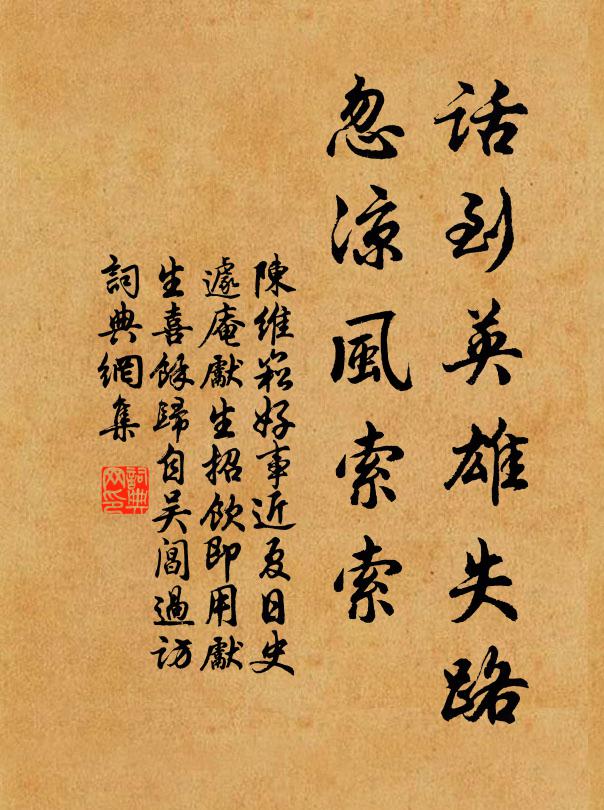 话到英雄失路
忽涼風索索
陳維崧好事近夏日史
遽庵獻生招飲即用獻
生喜餘歸自吴閶過訪
詞典網集
詞典网印